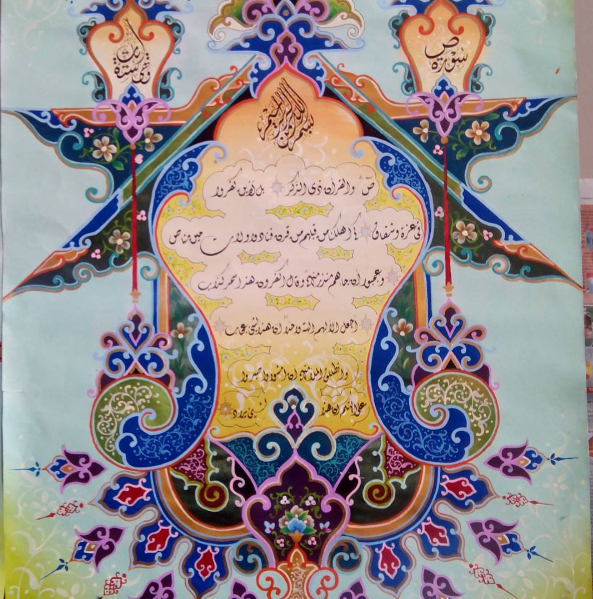 سورة ص
بسم الله الرحمن الرحيم
ص والقران ذى الذكر بل الذين كفروا
فى عزة وشقاق كم اهلكنا من قبلهم من قرن فنادوا ولات حين مناص
وعجبوا ان جاءهم منذر منهم وقال الكفرون هذا سحر كذاب
اجعل الالهة الها واحدا ان هذا لشئ عجاب
وانطلق الملا منهم ان امشوا واصبروا
على الهتكم ان هذا لشئ يراد